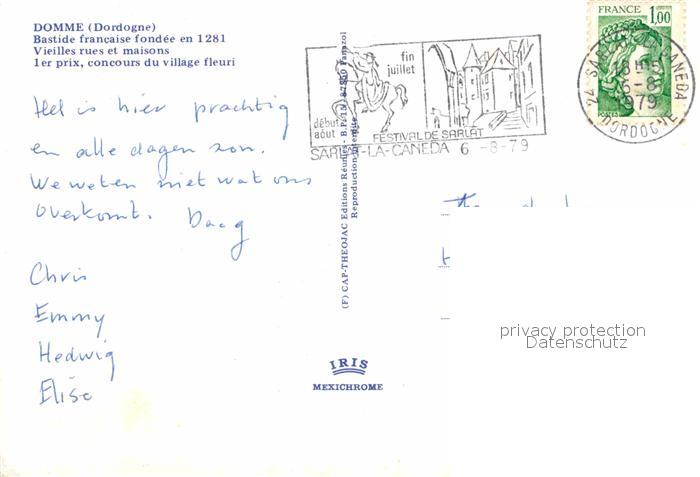 DOMME (Dordogne)
Bastide française fondée en 1281
Vieilles rues et maisons
1er prix, concours du village fleuri
Het is hier prachtig
en alle dagen zon.
We weten niet wat ons
overkomt. Daag
Chris
Emmy
Hedwig
Elise
(F) CAP-THEOJAC Editions Réunies - B.P. 87350 Panazol
Reproduction interdite
IRIS
MEXICHROME
fin
juillet
début
août
FESTIVAL DE SARLAT
SARLAT-LA-CANEDA 6 -8-79
FRANCE 1,00
POSTES
24 SARLAT-LA-CANEDA
18H
6-8
1979
DORDOGNE
t
privacy protection
Datenschutz